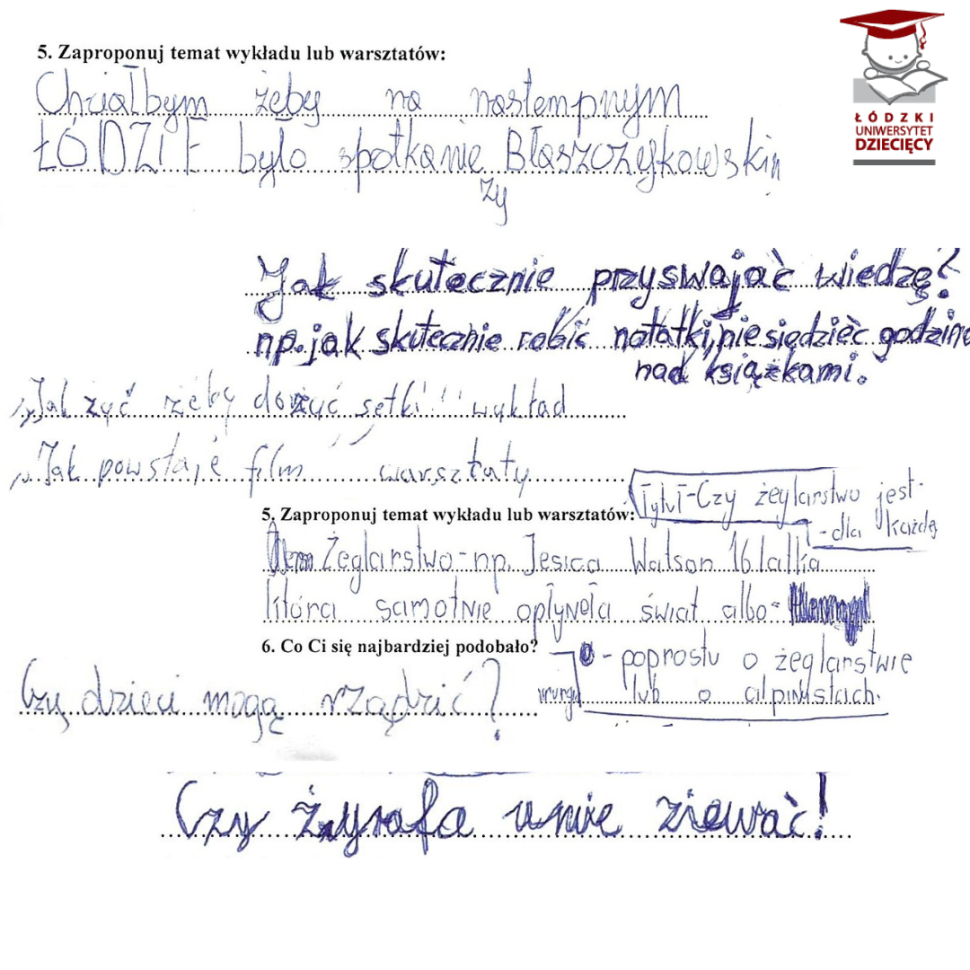 5. Zaproponuj temat wykładu lub warsztatów:
ŁÓDZKI
UNIWERSYTET
DZIECIĘCY
Chciałbym żeby na nastempnym
ŁÓDZIE było spotkanie Błaszczykowskin
zy
Jak skutecznie przyswajać wiedzę?
np. jak skutecznie robić notatki, nie siedzieć godzinę
nad książkami.
„Jak żyć żeby dożyć setki" wykład
„Jak powstaje film" warsztaty
Tytuł-Czy żeglarstwo jest
- dla każdego
5. Zaproponuj temat wykładu lub warsztatów:
Żeglarstwo - np. Jesica Watson 16 latka
która samotnie opłyneła świat albo-
6. Co Ci się najbardziej podobało?
- poprostu o żeglarstwie
lub o alpinistach.
Czy dzieci mogą rządzić?
Czy żyrafa umie ziewać!